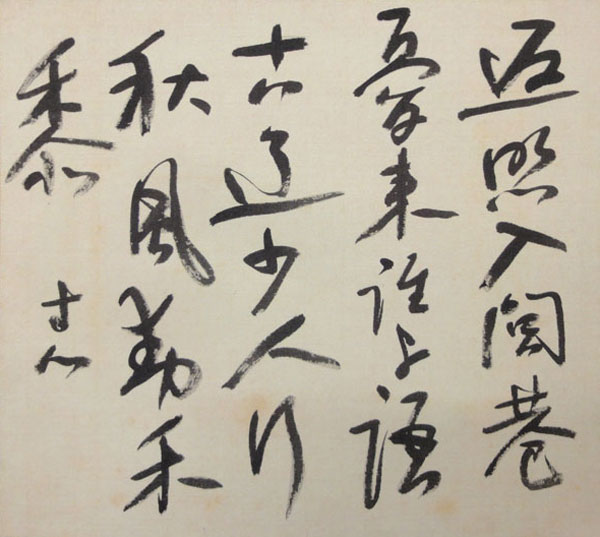 返照入閭巷
憂来誰与語
古道少人行
秋風動禾
黍